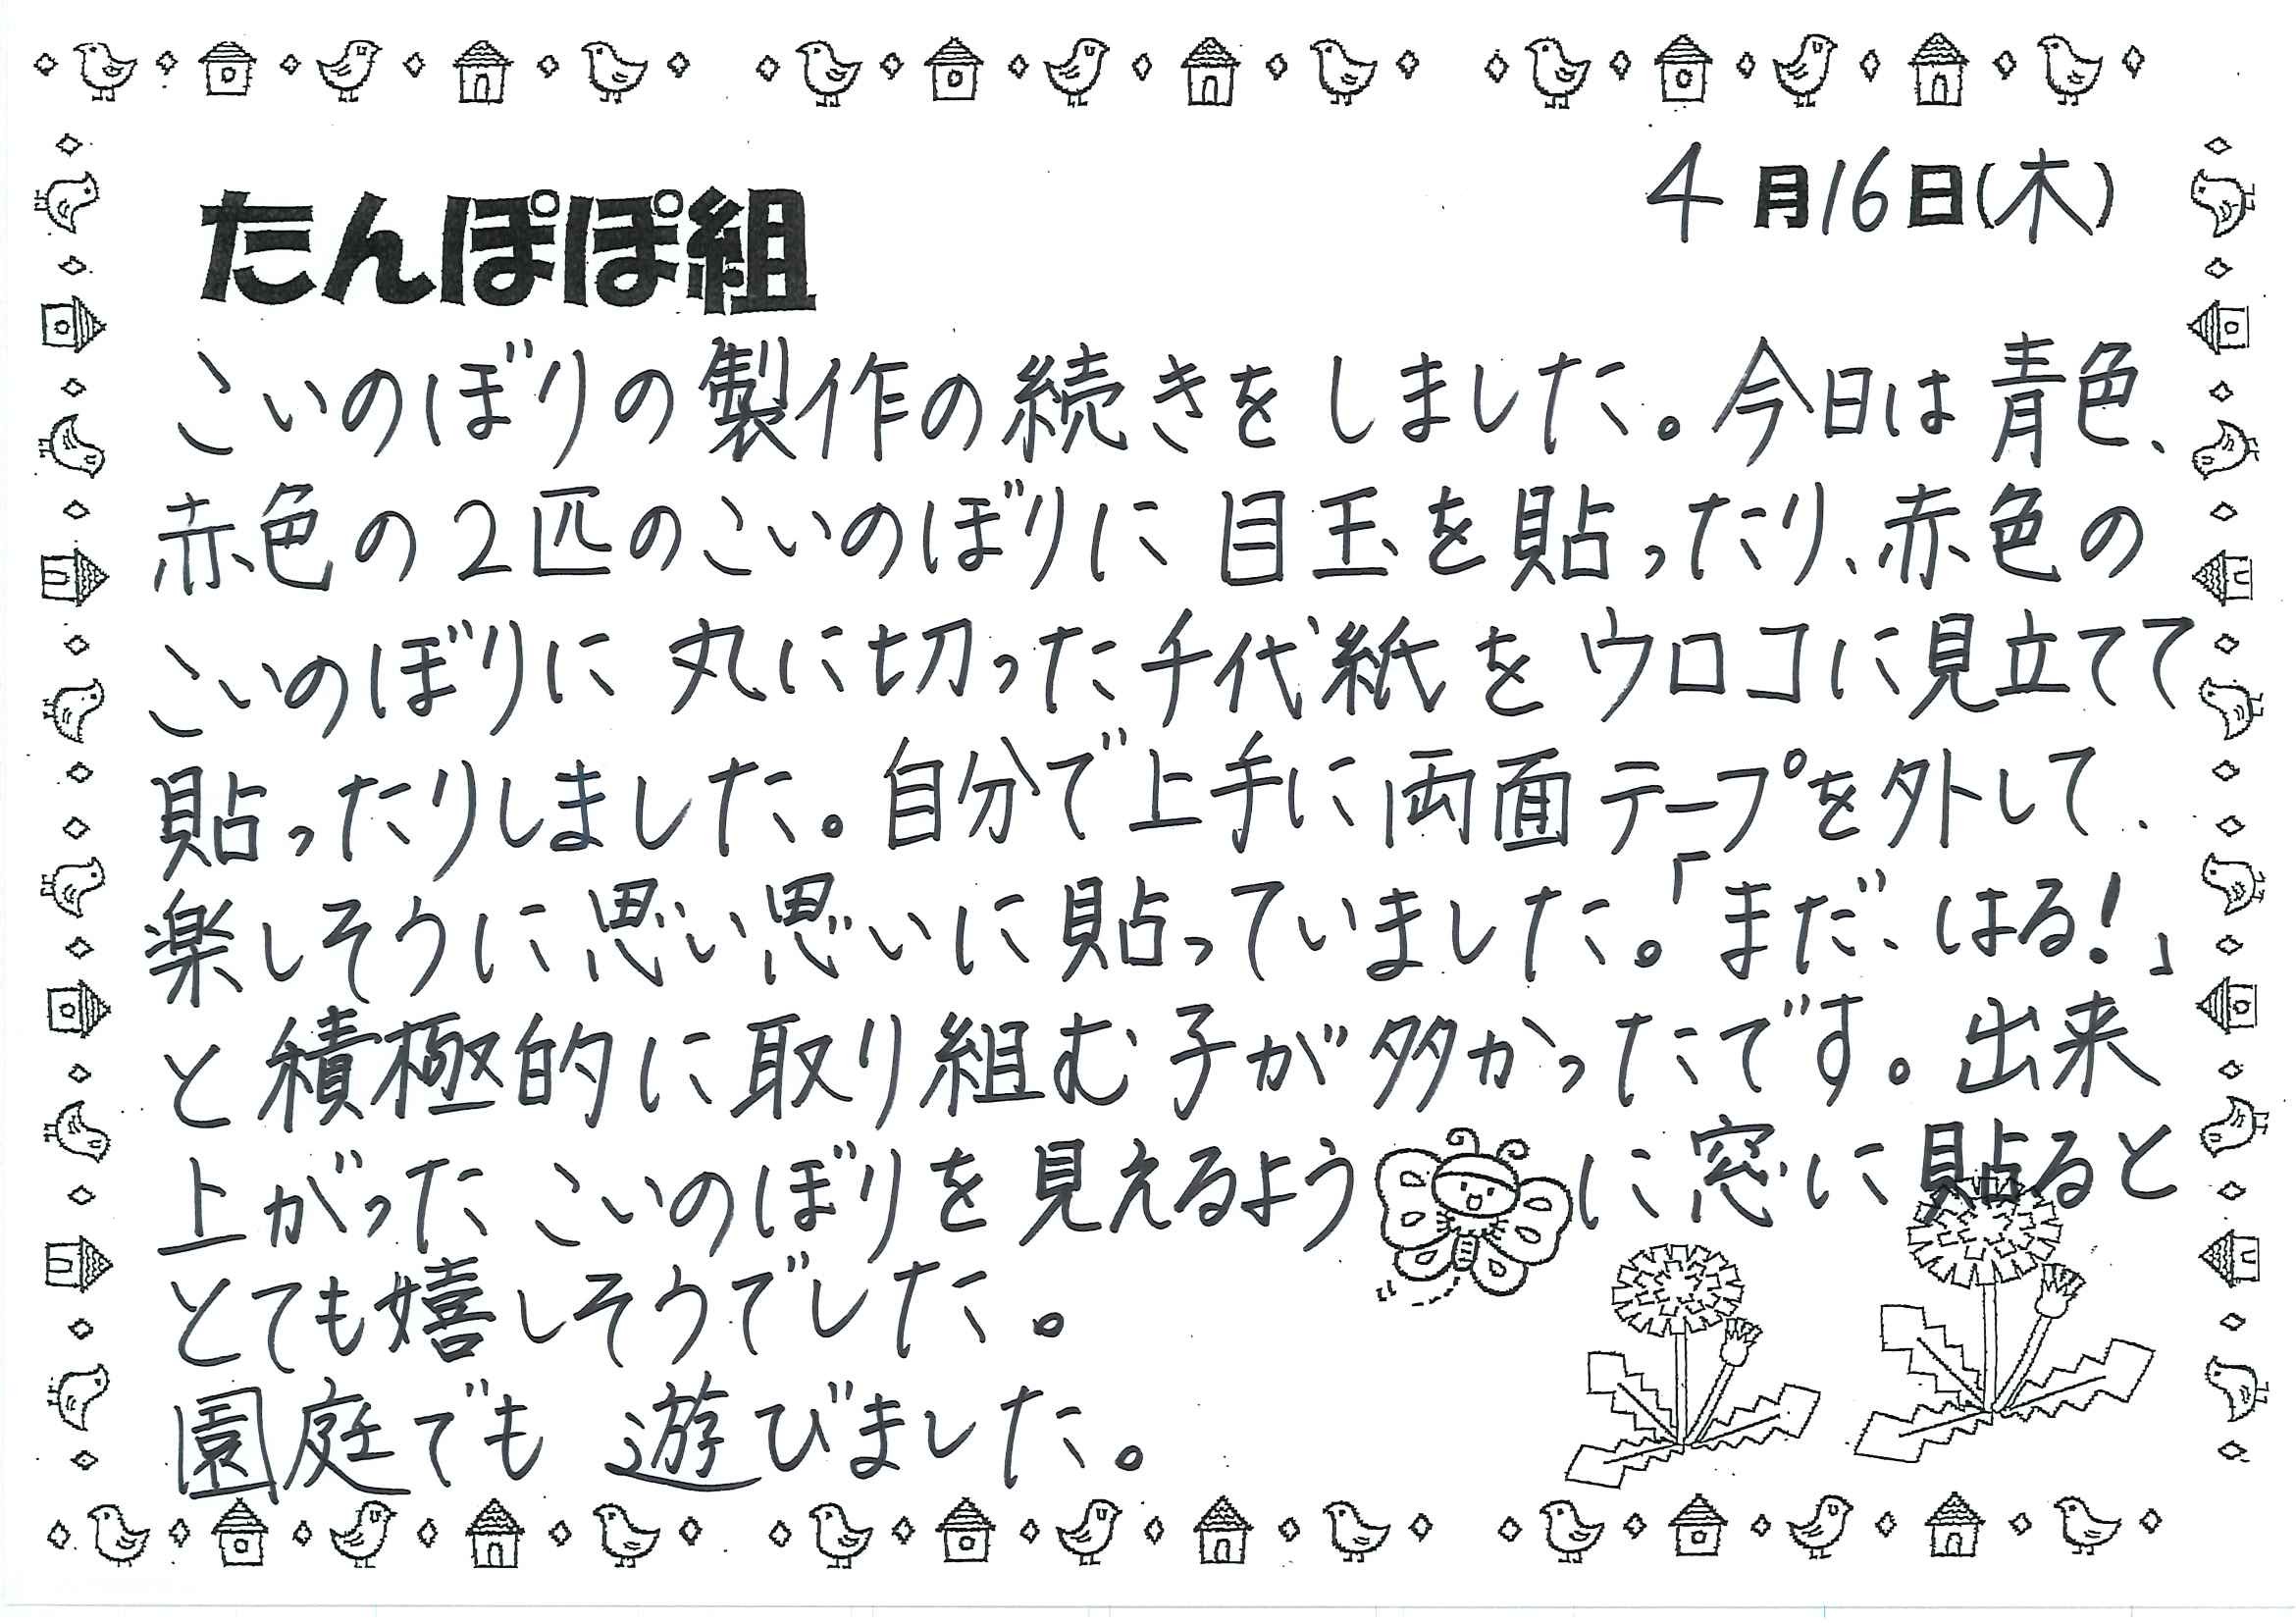 たんぽぽ組
4月16日(木)
こいのぼりの製作の続きをしました。今日は青色、
赤色の2匹のこいのぼりに目玉を貼ったり、赤色の
こいのぼりに丸に切った千代紙をウロコに見立てて
貼ったりしました。自分で上手に両面テープを外して、
楽しそうに思い思いに貼っていました。「まだ、はる!」
と積極的に取り組む子が多かったです。出来
上がったこいのぼりを見えるように窓に貼ると
とても嬉しそうでした。
園庭でも遊びました。